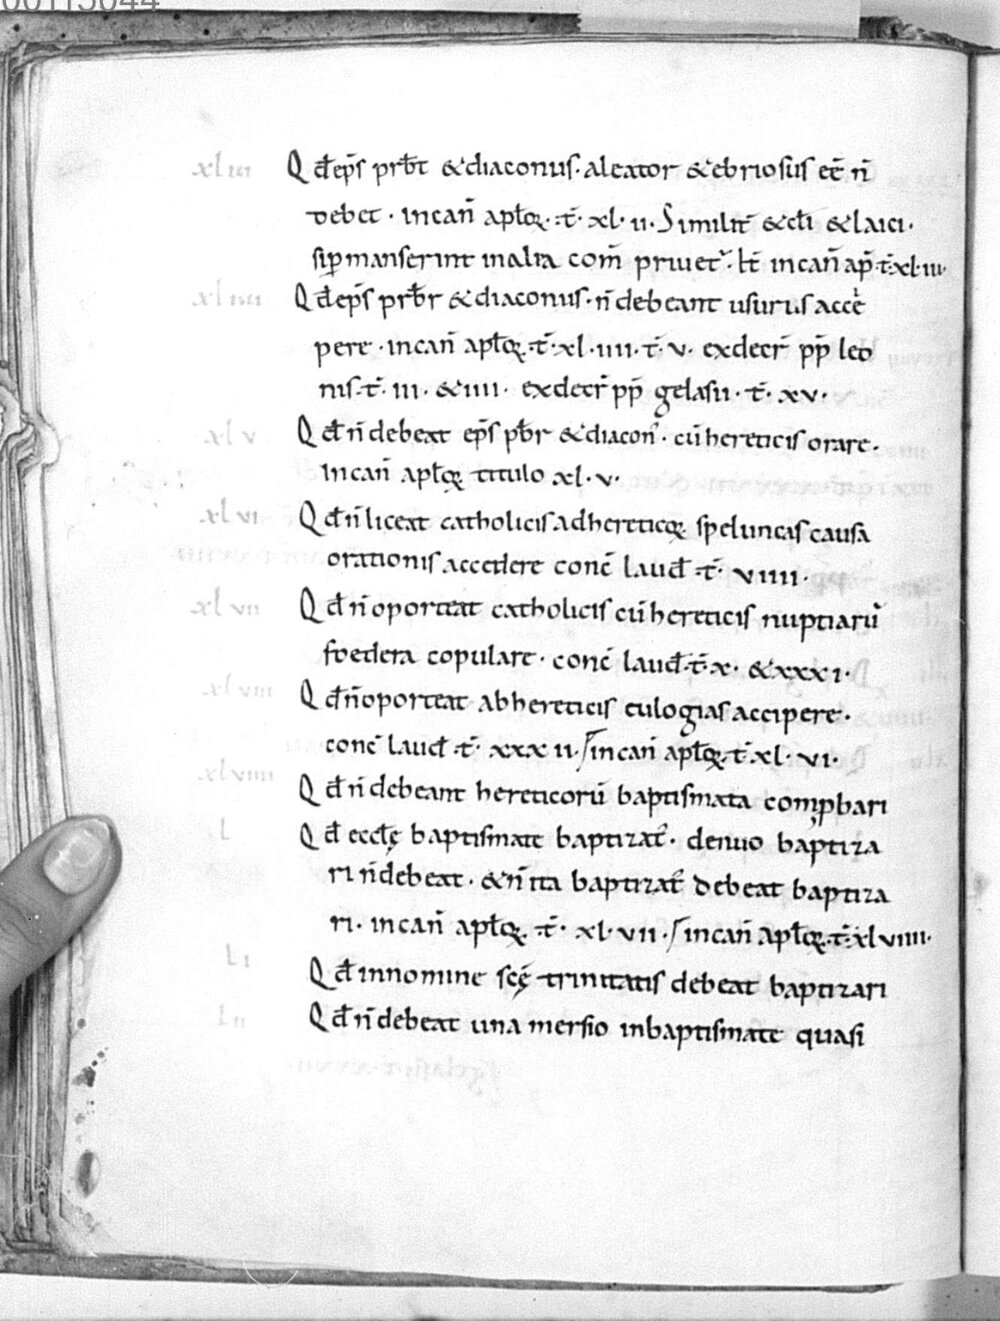 xl iii Qđ ep̄s prb̄t &diaconus· aleator &ebriosus eē n̄
debet · incan̄ aptoꝝ· t̄· xl· ii· Similit̄ &cłi &laici·
si ꝑmanserint in alea com̄ priuet᷑· ħt incan̄ ap̄ t̄· xl· iii·
xl iiii Qđ ep̄s prb̄r &diaconus· n̄ debeant usuras acci
pere · incan̄ aptoꝝ· t̄· xl· iiii· t̄· v· exdecr̄ pp̄ leo
nis· t̄· iii· &iiii· exdecr̄ pp̄ gelasii· t̄· xv·
xl v Qđ n̄ debeat ep̄s pb̄r &diacon᷒· cū hereticis orare·
Incan̄ aptoꝝ titulo xl· v·
xl vi Qđ n̄ liceat catholicis adhereticoꝝ speluncas causa
orationis accedere conc̄ laud̄ t̄· viiii·
xl vii Qđ n̄ oporteat catholicis cū hereticis nuptiarū
foedera copulare· conc̄ laud̄· t̄· x· &xxxi·
xl viii Qđ n̄ oporteat abhereticis eulogias accipere·
conc̄ laud̄ t̄· xxxii· / incan̄ aptoꝝ· t̄· xl· vi·
xl viiii Qđ n̄ debeant hereticorū baptismata comꝓbari
l Qđ eccłę baptismate baptizat᷒· denuo baptiza
ri n̄ debeat· &n̄ ita baptizat᷒ debeat baptiza
ri· incan̄ aptoꝝ· t̄· xl· vii· / incan̄ aptoꝝ· t̄· xl viiii·
l i Qđ innomine scę̄ trinitatis debeat baptizari
l ii Qđ n̄ debeat una mersio inbaptismate quasi